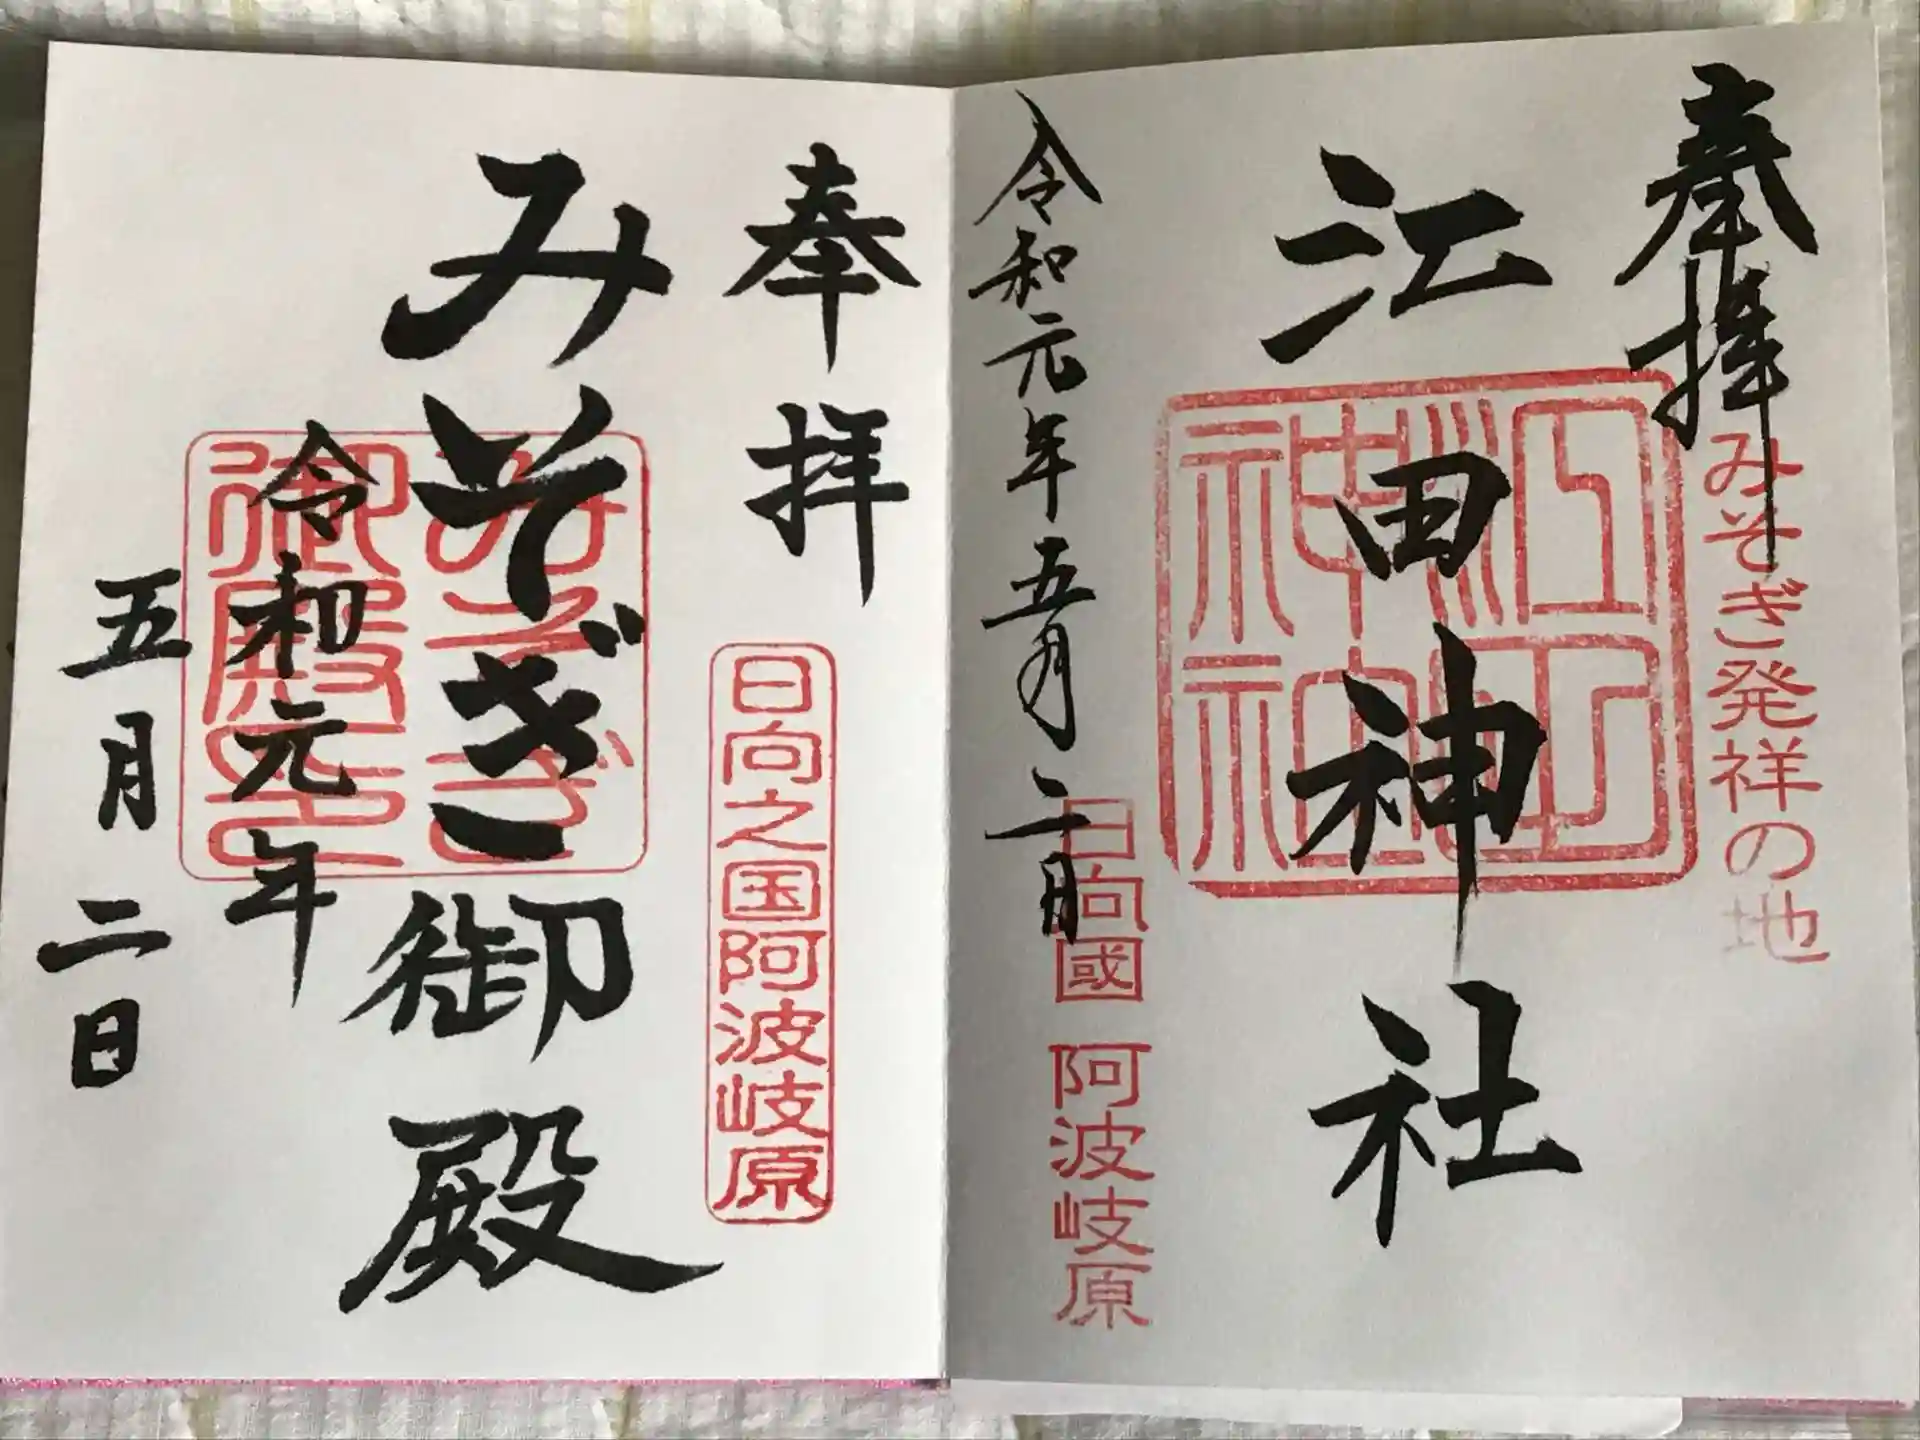 奉拝
みそぎ発祥の地
江田神社
江田神社
日向國 阿波岐原
令和元年五月二日
奉拝
日向之国阿波岐原
みそぎ御殿
みそぎ
御殿之印
令和元年
五月二日